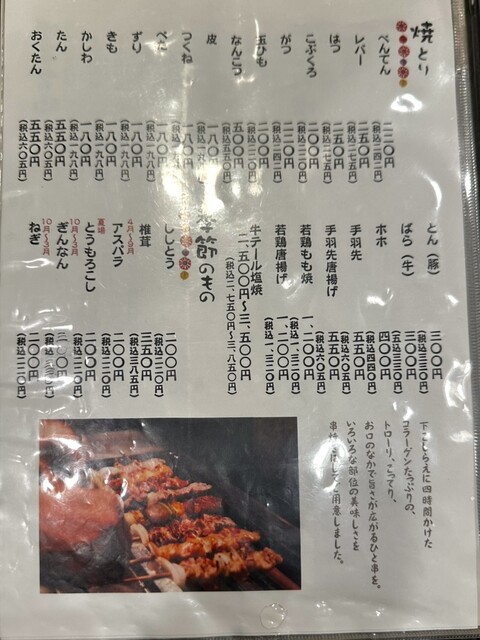 焼とり
べんてん
二二〇円
(税込二四二円)
レバー
二五〇円
(税込二七五円)
はつ
二五〇円
(税込二七五円)
こぶくろ
二〇〇円
(税込二二〇円)
がつ
二二〇円
(税込二四二円)
玉ひも
二〇〇円
(税込二二〇円)
なんこつ
五〇〇円
(税込五五〇円)
皮
一八〇円
つくね
一八〇円
一八〇円
(税込一九八円)
ずり
一八〇円
(税込一九八円)
きも
一八〇円
(税込一九八円)
かしわ
一八〇円
(税込一九八円)
たん
五五〇円
(税込六〇五円)
おくたん
五五〇円
(税込六〇五円)
とん(豚)
三〇〇円
(税込三三〇円)
ばら(牛)
三〇〇円
(税込三三〇円)
ホホ
四〇〇円
(税込四四〇円)
手羽先
五五〇円
(税込六〇五円)
手羽先唐揚げ
五五〇円
(税込六〇五円)
若鶏もも焼
一、二〇〇円
(税込一、三二〇円)
若鶏唐揚げ
一、二〇〇円
(税込一、三二〇円)
牛テール塩焼
二、五〇〇円～三、五〇〇円
(税込二、七五〇円～三、八五〇円)
季節のもの
ししとう
二〇〇円
(税込二二〇円)
椎茸
三五〇円
(税込三八五円)
4月～9月
アスパラ
二〇〇円
(税込二二〇円)
夏場
とうもろこし
二〇〇円
(税込二二〇円)
10月～3月
ぎんなん
10月～3月
ねぎ
二〇〇円
(税込二二〇円)
下ごしらえに四時間かけた
コラーゲンたっぷりの、
トローリ、こってり、
お口のなかで旨さが広がるひと串を。
いろいろな部位の美味しさを
ご用意しました。